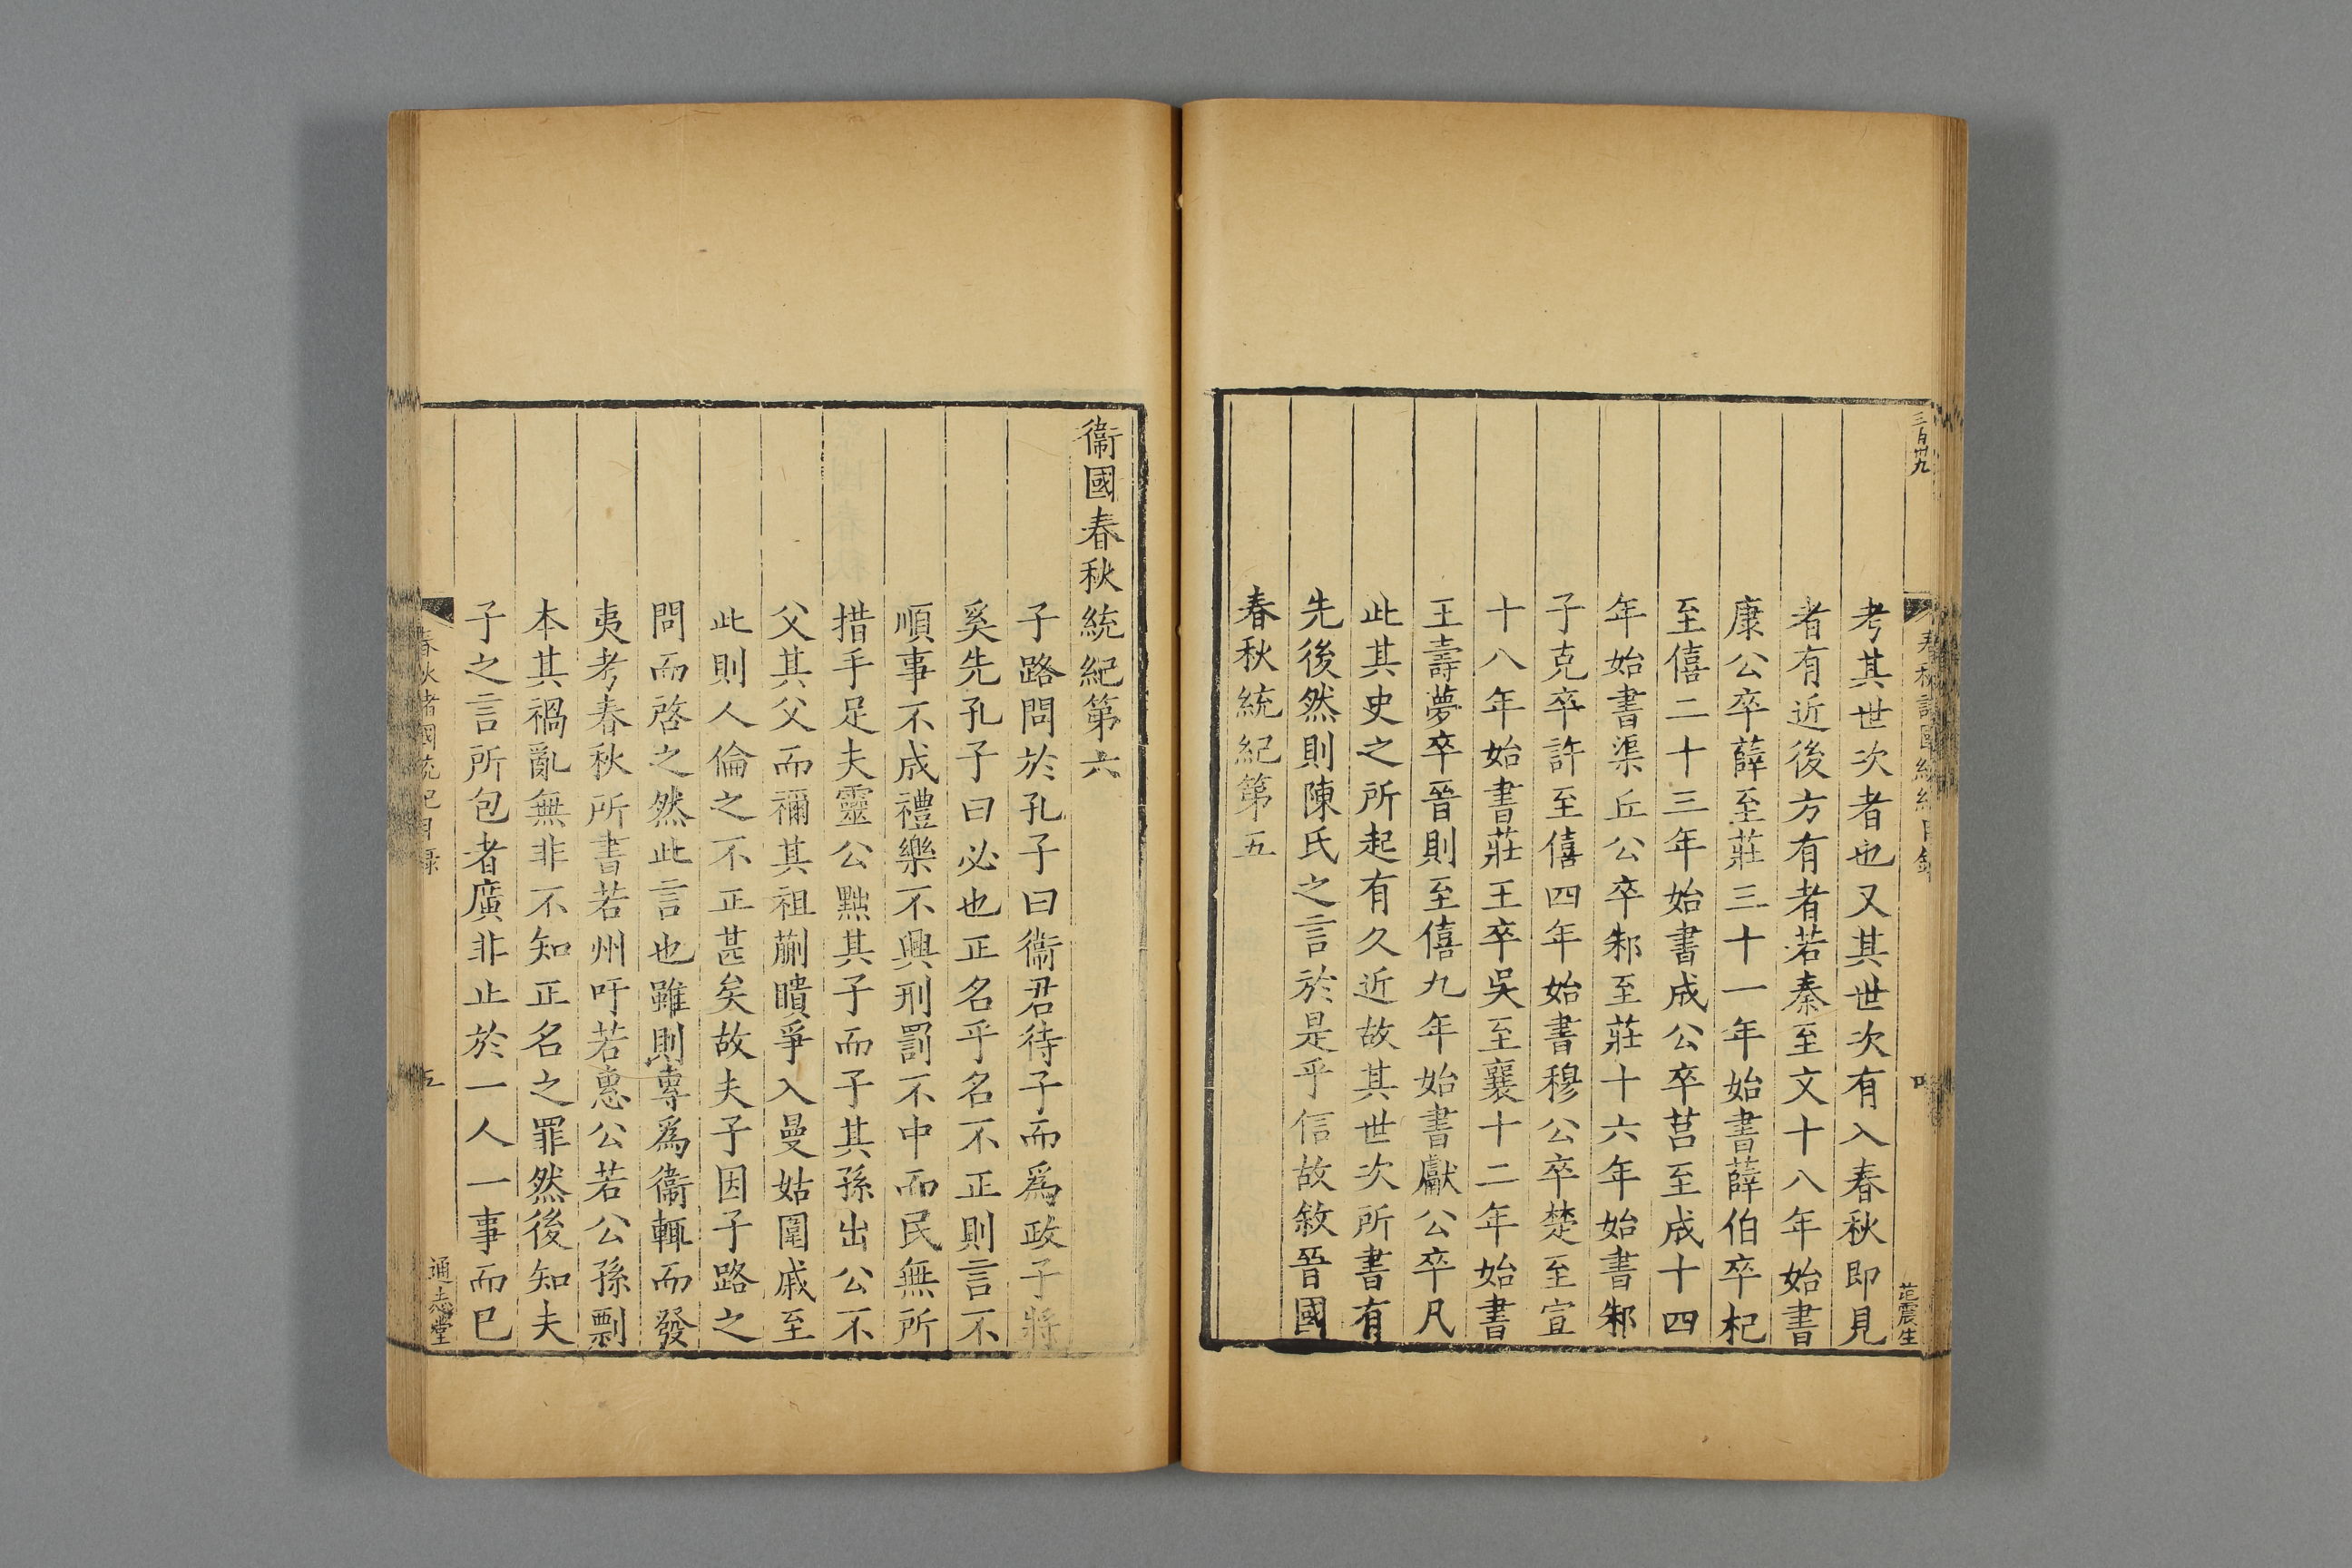 三百卅九
考其世次者也又其世次有入春秋即見
者有近後方有者若秦至文十八年始書
康公卒薛至莊三十一年始書薛伯卒杞
至僖二十三年始書成公卒莒至成十四
年始書渠丘公卒邾至莊十六年始書邾
子克卒許至僖四年始書穆公卒楚至宣
十八年始書莊王卒吳至襄十二年始書
王壽夢卒晉則至僖九年始書獻公卒凡
此其史之所起有久近故其世次所書有
先後然則陳氏之言於是乎信故敘晉國
春秋統紀第五
衞國春秋統紀第六
子路問於孔子曰衞君待子而爲政子將
奚先孔子曰必也正名乎名不正則言不
順事不成禮樂不興刑罰不中而民無所
措手足夫靈公黜其子而子其孫出公不
父其父而禰其祖蒯聵爭入曼姑圍戚至
此則人倫之不正甚矣故夫子因子路之
問而啓之然此言也雖則專爲衞輒而發
夷考春秋所書若州吁若惠公若公孫剽
本其禍亂無非不知正名之罪然後知夫
子之言所包者廣非止於一人一事而已
春秋諸國統紀目錄
五
通志堂